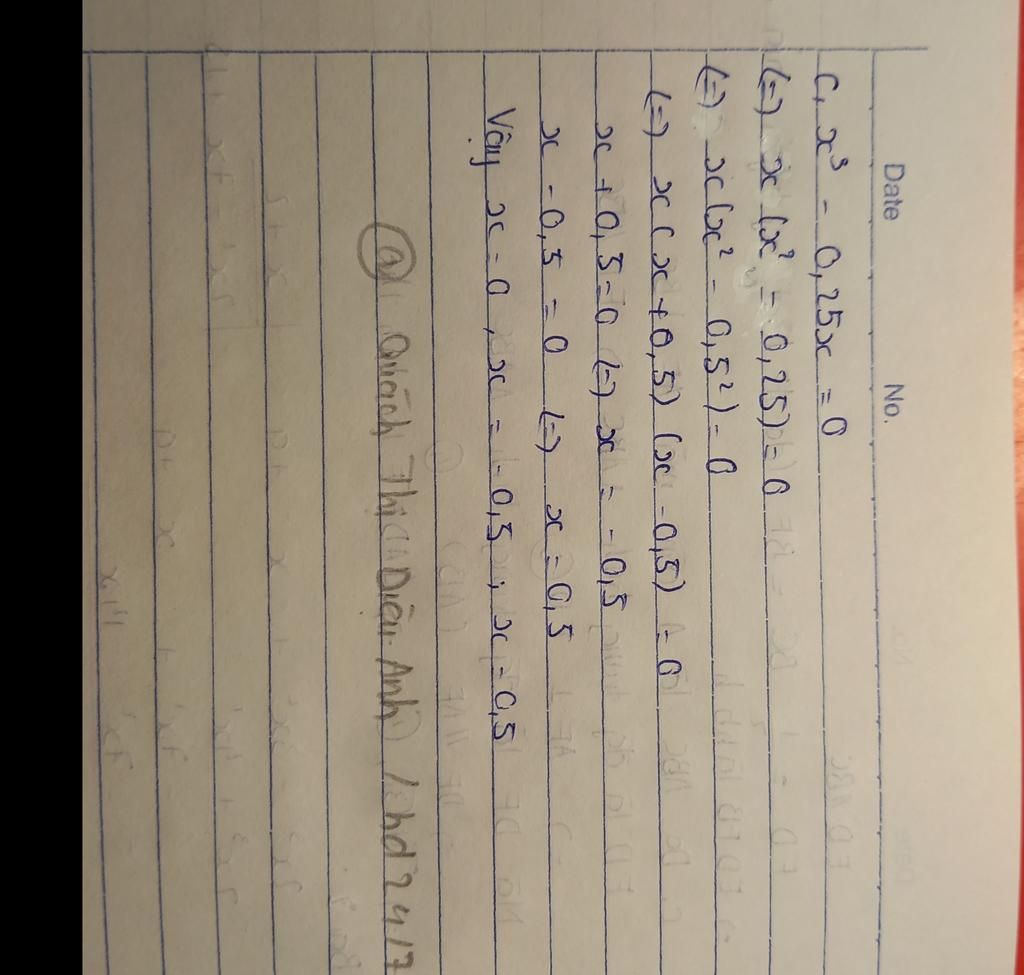 Date No.
c, x³ - 0,25x = 0
(=) x (x² - 0,25) = 0
(=) x (x² - 0,5²) = 0
(=) x (x + 0,5) (x - 0,5) = 0
x + 0,5 = 0 (=) x = - 0,5
x - 0,5 = 0 (=) x = 0,5
Vậy x = 0, x = - 0,5; x = 0,5
@ Quách Thị Diệu Anh / hd 2417